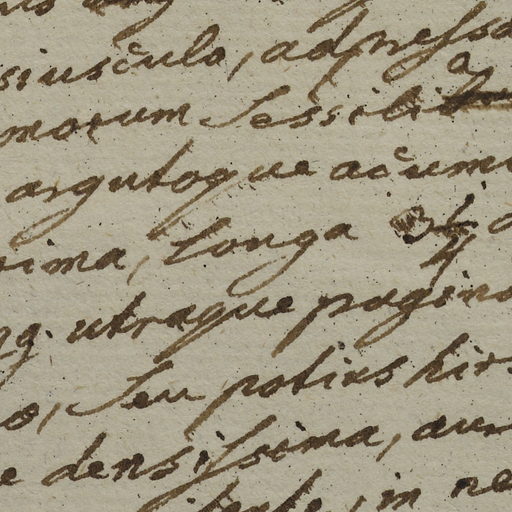 siusculo, adpressa
morum sessili
argutoque acumi
rima, longa 3
ng. utraque pagina
o, seu potius hirs
e densissima, aur
in ne